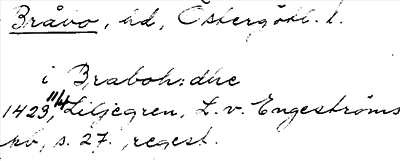 Bråvo, hd, Östergötl. l.
i Braboh:dhe
1423 11/4, Liljegren, L. v. Engeströms
kv, s. 27. regest.